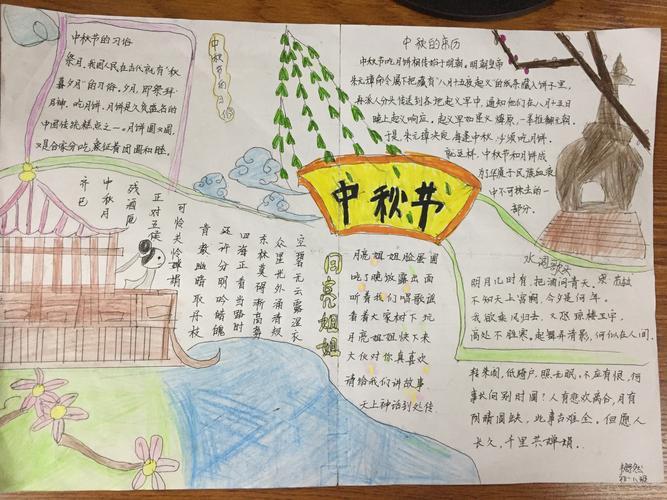 中秋节的习俗
祭月,我国人民在古代就有"秋
暮夕月"的习俗。夕月,即祭拜
月神。吃月饼,月饼是久负盛名的
中国传统糕点之一。月饼圆又圆,
又是合家分吃,象征着团圆和睦。
中秋节的习俗
中秋的来历
中秋节吃月饼相传始于明朝。明朝皇帝
朱元璋命令属下把藏有"八月十五夜起义"的纸条藏入饼子里,
再派人分头传送到各地起义军中,通知他们在八月十五日
晚上起义响应,起义军如星火燎原,一举推翻元朝。
于是朱元璋决定每逢中秋必须吃月饼。
就这样,中秋节和月饼成
为华夏子民族血液
中不可抹去的一
部分。
中秋节
空碧无云露湿衣
众星光外涌清规
东林莫碍渐高势
四海正看当路时
还许分明吟皓魄
肯教幽暗取丹枝
可怜关夕婵娟
正对五侯
残酒卮
中秋月
齐己
月亮姐姐
月亮姐姐脸蛋圆
吃了晚饭露出面
听着我们唱歌谣
看着大家树下玩
月亮姐姐快下来
大伙对你真喜欢
请给我们讲故事
天上神话到处传
水调歌头
明月几时有,把酒问青天
不知天上宫阙,今夕是何年。
我欲乘风归去,又恐琼楼玉宇,
高处不胜寒。起舞弄清影,何似在人间。
转朱阁,低绮户,照无眠。不应有恨,何
事长向别时圆?人有悲欢离合,月有
阴晴圆缺,此事古难全。但愿人
长久,千里共婵娟。